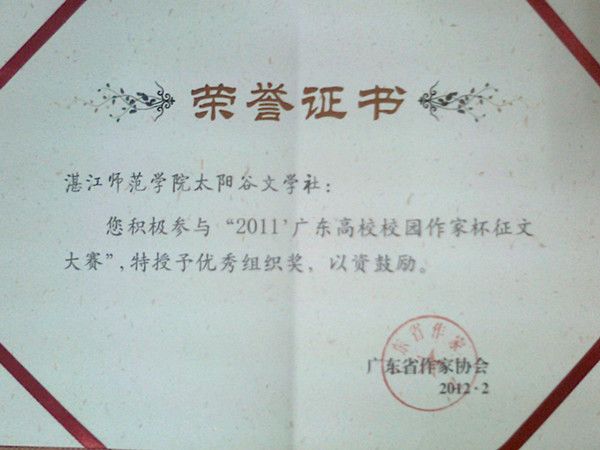 荣誉证书
湛江师范学院太阳谷文学社：
您积极参与“2011'广东高校校园作家杯征文
大赛”,特授予优秀组织奖，以资鼓励。
东省作家
广东省作家协会
2012·2